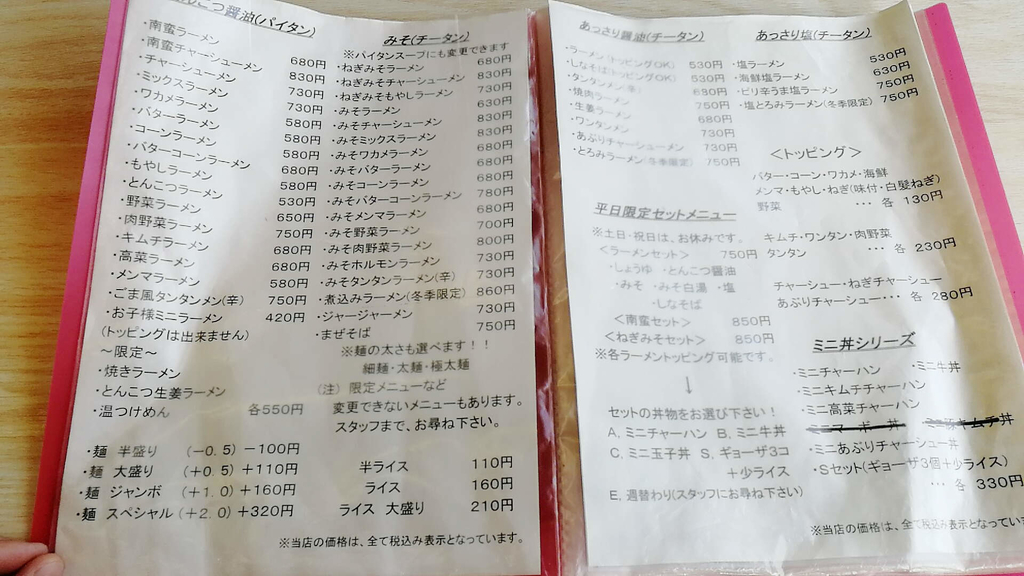 んこつ醤油(パイタン)
・南蛮ラーメン 680円
・南蛮チャーシューメン 830円
・チャーシューメン 730円
・ミックスラーメン 730円
・ワカメラーメン 580円
・バターラーメン 580円
・コーンラーメン 580円
・バターコーンラーメン 680円
・もやしラーメン 580円
・とんこつラーメン 530円
・野菜ラーメン 650円
・肉野菜ラーメン 750円
・キムチラーメン 680円
・高菜ラーメン 680円
・メンマラーメン 580円
・ごま風タンタンメン(辛) 750円
・お子様ミニラーメン 420円
(トッピングは出来ません)
～限定～
・焼きラーメン
・とんこつ生姜ラーメン
・温つけめん 各550円
・麺 半盛り (－0.5) －100円
・麺 大盛り (＋0.5) ＋110円
・麺 ジャンボ (＋1.0) ＋160円
・麺 スペシャル (＋2.0) ＋320円
みそ(チータン)
※パイタンスープにも変更できます
・ねぎみそラーメン 680円
・ねぎみそチャーシューメン 830円
・ねぎみそもやしラーメン 730円
・みそラーメン 630円
・みそチャーシューメン 830円
・みそミックスラーメン 830円
・みそワカメラーメン 680円
・みそバターラーメン 680円
・みそコーンラーメン 680円
・みそバターコーンラーメン 780円
・みそメンマラーメン 680円
・みそ野菜ラーメン 700円
・みそ肉野菜ラーメン 800円
・みそホルモンラーメン 730円
・みそタンタンラーメン(辛) 730円
・煮込みラーメン(冬季限定) 860円
・ジャージャーメン 730円
・まぜそば 750円
※麺の太さも選べます！！
細麺・太麺・極太麺
(注) 限定メニューなど
変更できないメニューもあります。
スタッフまで、お尋ね下さい。
半ライス 110円
ライス 160円
ライス 大盛り 210円
※当店の価格は、全て税込み表示となっています。
あっさり醤油(チータン)
・ラーメン(トッピングOK) 530円
・しなそば(トッピングOK) 530円
・タンタンメン(辛) 630円
・焼肉ラーメン 750円
・生姜ラーメン 680円
・ワンタンメン 730円
・あぶりチャーシューメン 730円
・とろみラーメン(冬季限定) 750円
平日限定セットメニュー
※土日・祝日は、お休みです。
＜ラーメンセット＞ 750円
・しょうゆ ・とんこつ醤油
・みそ ・みそ白湯 ・塩
・しなそば
＜南蛮セット＞ 850円
＜ねぎみそセット＞ 850円
※各ラーメントッピング可能です。
↓
セットの丼物をお選び下さい！
A、ミニチャーハン B、ミニ牛丼
C、ミニ玉子丼 S、ギョーザ3コ
＋少ライス
E、週替わり(スタッフにお尋ね下さい)
あっさり塩(チータン)
・塩ラーメン 530円
・海鮮塩ラーメン 630円
・ピリ辛うま塩ラーメン 750円
・塩とろみラーメン(冬季限定) 750円
＜トッピング＞
バター・コーン・ワカメ・海鮮
メンマ・もやし・ねぎ(味付・白髪ねぎ)
野菜 … 各 130円
キムチ・ワンタン・肉野菜
タンタン … 各 230円
チャーシュー・ねぎチャーシュー
あぶりチャーシュー… 各 280円
ミニ丼シリーズ
・ミニチャーハン ・ミニ牛丼
・ミニキムチチャーハン
・ミニ高菜チャーハン
・ミニあぶりチャーシュー丼
・Sセット(ギョーザ3個＋少ライス)
… 各 330円
※当店の価格は、全て税込み表示となっています